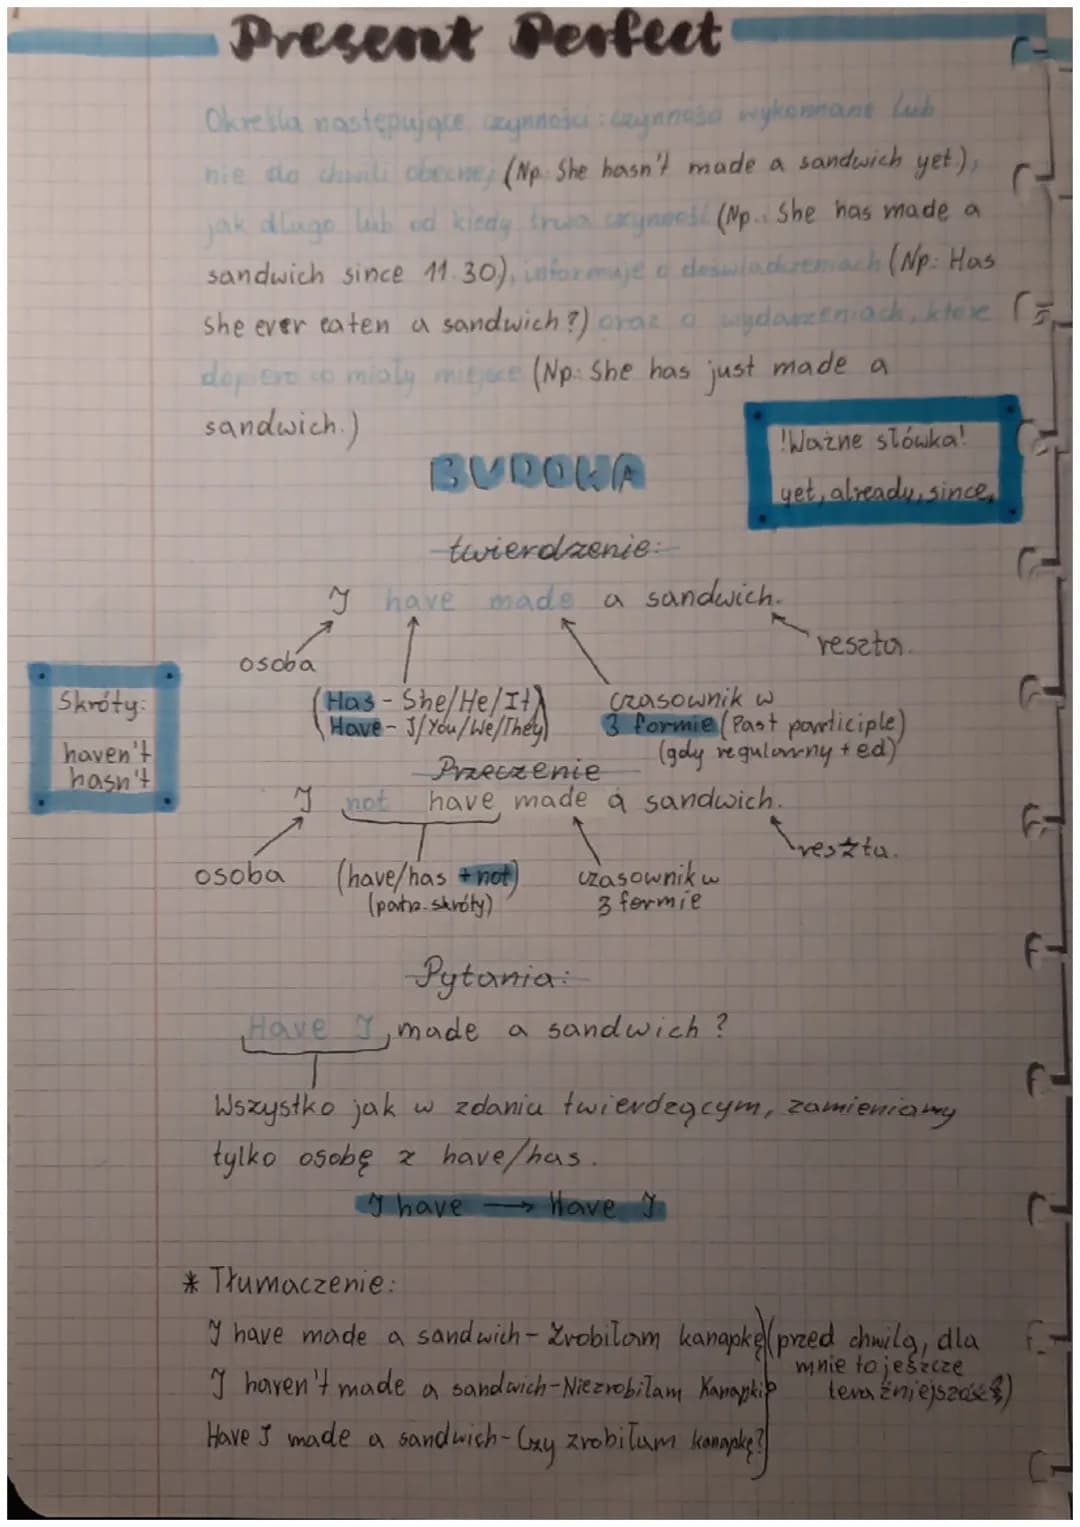 Present Perfect
Określa następujące czynności: czynności wykonane lub
nie do chwili obecnej (Np. She hasn't made a sandwich yet.),
jak długo lub od kiedy trwa czynność (Np.: She has made a
sandwich since 11.30), informuje o doświadczeniach (Np: Has
she ever eaten a sandwich?) oraz o wydarzeniach, które
dopiero co miały miejsce (Np: She has just made a
sandwich.)
!Ważne słówka!
yet, already, since,
BUDOWA
twierdzenie:
I have made a sandwich.
osoba
reszta.
(Has - She/He/It)
(Have - I/You/We/They)
czasownik w
3 formie (Past participle)
(gdy regularny + ed)
Skróty:
haven't
hasn't
Przeczenie
I not have made a sandwich.
osoba
(have/has + not)
(patrz. skróty)
czasownik w
3 formie
reszta.
Pytania:
Have I made a sandwich?
Wszystko jak w zdaniu twierdzącym, zamieniamy
tylko osobę z have/has.
I have → Have I
* Tłumaczenie:
I have made a sandwich - Zrobiłam kanapkę (przed chwilą, dla
mnie to jeszcze
teraźniejszość)
I haven't made a sandwich - Niezrobiłam Kanapki
Have I made a sandwich - Czy zrobiłam kanapkę?